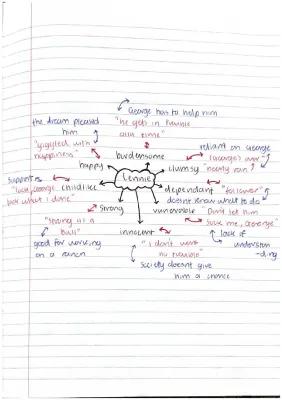 George has to help him
"he gets in trouble
alla time"
the dream pleased
him
"giggled with
happiness"
burdensome
reliant on George
happy
Lennie
clumsy
"nearly ran"
support
"look, George,
look what I done"
childlike
dependant
"follower"
doesnt know what to do
strong
vunerable
"Dont let him
sock me, George"
"strong as a
bull"
innocent
lack of
understan
-ding
good for working
on a ranch
"I don't want
no trouble"
society doesnt give
him a chance